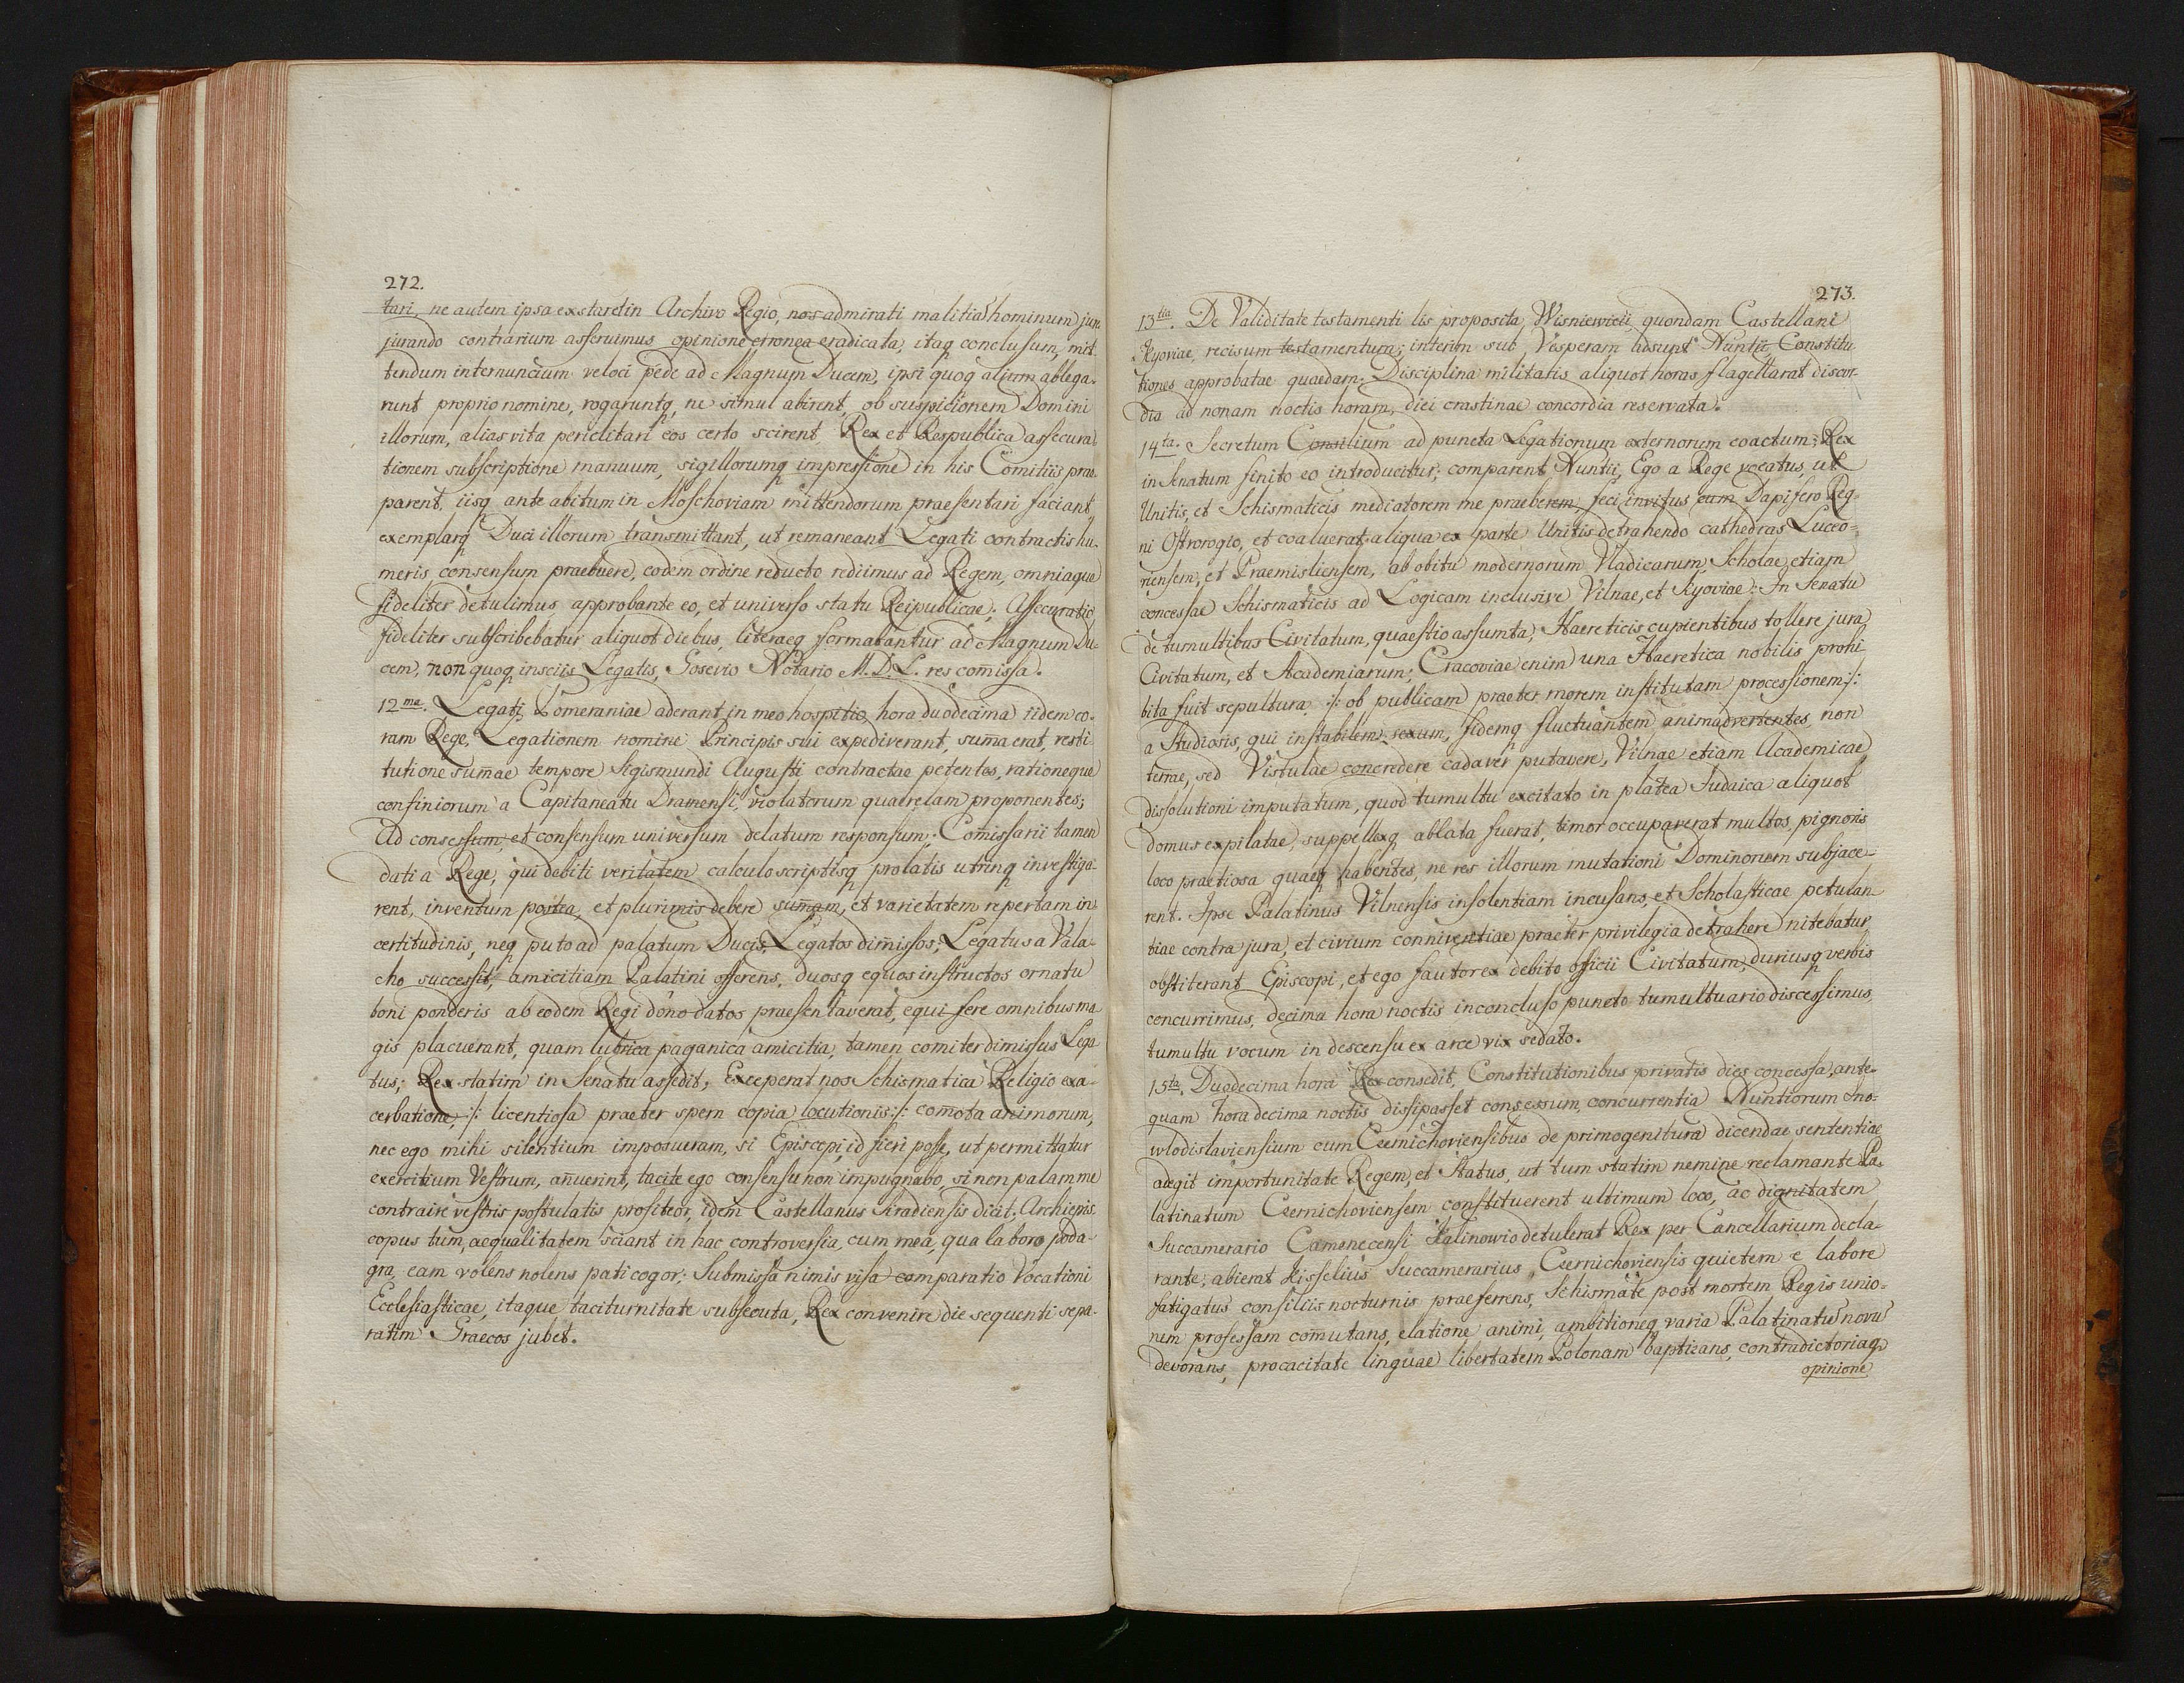 272.
tari, ne autem ipsa exstaret in Archivo Regio, nos admirati malitia hominum jure
jurando contrarium asseruimus opinione erronea eradicata, itaq conclusum, mit
tendum internuncium veloci pede ad Magnum Ducem, ipsi quoq alium ablega-
runt proprio nomine, rogaruntq, ne simul abirent, ob suspicionem Domini
illorum, alias vita periclitari eos certo scirent, Rex et Respublica assecura-
tionem subscriptione manuum, sigillorumq impressione in his Comitiis prae-
parent, iisq ante abitum in Moschoviam mittendorum praesentari faciant
exemplarq Duci illorum transmittant, ut remaneant Legati contractis hu-
meris consensum praebuere, eodem ordine reducto rediimus ad Regem, omniaque
fideliter detulimus approbante eo, et universo statu Reipublicae; Assecuratio
fideliter subscribebatur aliquot diebus, literaeq formabantur ad Magnum Du-
cem, non quoq insciis Legatis, Gosevio Notario M. D. L. res com̄issa.
12ma. Legati Pomeraniae aderant in meo hospitio, hora duodecima iidem co-
ram Rege, Legationem nomine Principis sui expediverant, sum̄a erat, resti
tutione sum̄ae tempore Sigismundi Augusti contractae petentes, rationeque
confiniorum a Capitaneatu Dramensi, violatorum quaerelam proponentes;
ad consessum, et consensum universum delatum responsum; Com̄issarii tamen
dati a Rege, qui debiti veritatem calculo scriptisq prolatis utrinq investiga-
rent, inventum postea, et plurimis debere sum̄am, et varietatem repertam in-
certitudinis, neq puto ad palatum Ducis, Legatos dim̄issos; Legatus a Vala-
cho successit, amicitiam Palatini offerens, duosq equos instructos ornatu
boni ponderis ab eodem Regi dono datos praesentaverat, equi fere omnibus ma
gis placuerant, quam lubrica paganica amicitia, tamen comiter dimissus Lega
tus; Rex statim in Senatu assedit; Exceperat nos Schismatica Religio exa-
cerbatione, :/: licentiosa praeter spem copia locutionis :/: com̄ota animorum,
nec ego mihi silentium imposueram, si Episcopi, id fieri posse, ut permittatur
exercitium Vestrum, an̄uerint, tacite ego consensu non impugnabo, si non palam me
contraire vestris postulatis profiteor, idem Castellanus Siradiensis dicit; Archiepis-
copus tum, aequalitatem sciant in hac controversia, cum mea, qua laboro poda-
gra, eam volens nolens pati cogor; Submissa nimis visa comparatio Vocationi
Ecclesiasticae, itaque taciturnitate subsecuta, Rex convenire die sequenti sepa-
ratim Graecos jubet.
273.
13tia. De Validitate testamenti lis proposita Wisniewicii quondam Castellani
Kyoviae, recisum testamentum; interim sub Vesperam adsunt Nuntii, Constitu
tiones approbatae quaedam. Disciplina militaris aliquot horas flagellarat discor-
dia ad nonam noctis horam, diei crastinae concordia reservata.
14ta. Secretum Consilium ad puncta Legationum externorum coactum; Rex
in Senatum finito eo introducitur; comparent Nuntii, Ego a Rege vocatus, ut
Unitis, et Schismaticis mediatorem me praeberem, feci invitus cum Dapifero Reg-
ni Ostrorogio, et coaluerat aliqua ex parte Unitis detrahendo cathedras Luceo-
riensem, et Praemisliensem, ab obitu modernorum Vladicarum, Scholae etiam
concessae Schismaticis ad Logicam inclusive Vilnae, et Kyoviae; In Senatu
de tumultibus Civitatum, quaestio assumta; Haereticis cupientibus tollere jura
Civitatum, et Academiarum; Cracoviae enim una Haeretica nobilis prohi
bita fuit sepultura :/: ob publicam praeter morem institutam processionem :/:
a Studiosis, qui instabilem sexum, fidemq fluctuantem animadvertentes, non
terrae, sed Vistulae concredere cadaver putavere, Vilnae etiam Academicae
dissolutioni imputatum, quod tumultu excitato in platea Judaica aliquot
domus expilatae, suppellexq ablata fuerat, timor occupaverat multos, pignoris
loco praetiosa quaeq habentes, ne res illorum mutationi Dominorum subjace-
rent. Ipse Palatinus Vilnensis insolentiam incusans, et Scholasticae petulan
tiae contra jura, et civium conniventiae praeter privilegia detrahere nitebatur,
obstiterant Episcopi, et ego fautor ex debito officii Civitatum, duriusq verbis
concurrimus, decima hora noctis inconcluso puncto tumultuario discessimus
tumultu vocum in descensu ex arce vix sedato.
15ta. Duodecima hora Rex consedit, Constitutionibus privatis dies concessa, ante-
quam hora decima noctis dissipasset consessum, concurrentia Nuntiorum Ino-
wlodislaviensium cum Czernichoviensibus de primogenitura dicendae sententiae
adegit importunitate Regem, et Status, ut tum statim nemine reclamante Pa-
latinatum Czernichoviensem constituerent ultimum loco, ac dignitatem
Succamerario Camenecensi Kalinowio detulerat Rex per Cancellarium decla-
rante; abierat Kisselius Succamerarius Czernichoviensis quietem e labore
fatigatus consiliis nocturnis praeferrens, Schismate post mortem Regis unio-
nem professam com̄utans, elatione animi, ambitioneq varia Palatinatu novu
devorans, procacitate linguae libertatem Polonam baptizans, contradictoriaq
opinione